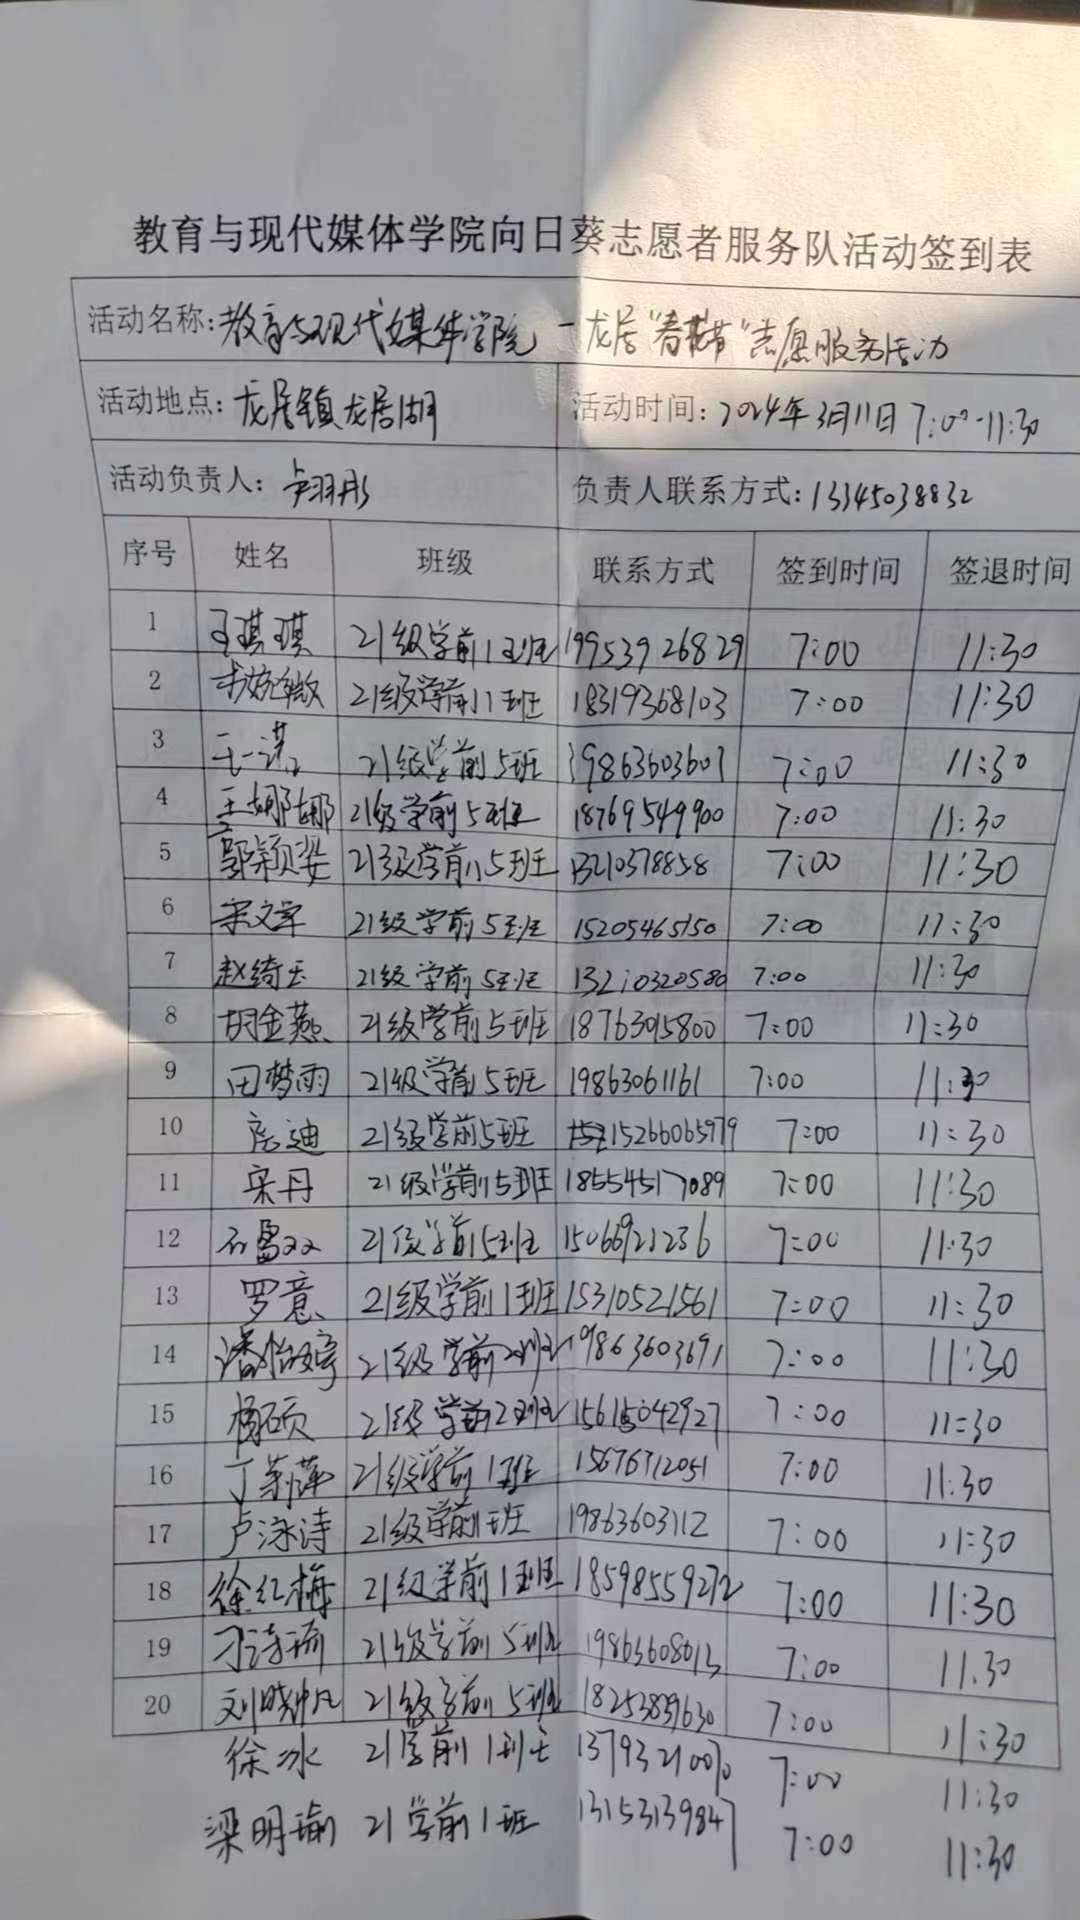 教育与现代媒体学院向日葵志愿者服务队活动签到表
活动名称:教育与现代媒体学院—龙居"春花节"志愿服务活动
活动地点:龙居镇龙居湖 活动时间:2024年3月11日 7:00-11:30
活动负责人:尹羽彤 负责人联系方式:13345038832
序号 姓名 班级 联系方式 签到时间 签退时间
1 王琪琪 21级学前1班 19953926829 7:00 11:30
2 21级学前1班 18319368103 7:00 11:30
3 王一诺 21级学前5班 19863603607 7:00 11:30
4 王娜娜 21级学前5班 18769549900 7:00 11:30
5 郭颖姿 21级学前5班 7:00 11:30
6 宋文宇 21级学前5班 15205465150 7:00 11:30
7 赵绮玉 21级学前5班 13210320580 7:00 11:30
8 胡金燕 21级学前5班 7:00 11:30
9 田梦雨 21级学前5班 19863061161 7:00 11:30
10 庞迪 21级学前5班 15266065979 7:00 11:30
11 宋丹 21级学前5班 18554517089 7:00 11:30
12 石露双 21级学前5班 15066921236 7:00 11:30
13 罗意 21级学前1班 15310521561 7:00 11:30
14 潘怡婷 21级学前2班 19863603691 7:00 11:30
15 杨硕 21级学前2班 15615042927 7:00 11:30
16 丁菊萍 21级学前1班 15676712051 7:00 11:30
17 卢泳诗 21级学前1班 19863603112 7:00 11:30
18 徐红梅 21级学前1班 18598559272 7:00 11:30
19 刁诗瑜 21级学前5班 19863608013 7:00 11:30
20 刘晓帆 21级学前5班 18253839630 7:00 11:30
徐冰 21学前1班 7:00 11:30
梁明瑜 21学前1班 13153139847 7:00 11:30